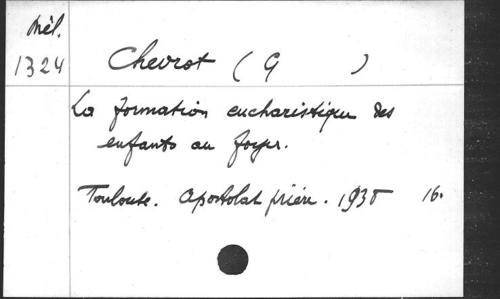 Mél.
1324
Chevrot (G )
La formation eucharistique des
enfants au foyer.
Toulouse. Apostolat prière. 1938 16.